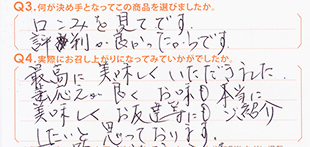 Q3.何が決め手となってこの商品を選びましたか。
口コミを見てです。
評判が良かったからです。
Q4.実際にお召し上がりになってみていかがでしたか。
最高に美味しくいただきました。
歯応えが良くお味も本当に
美味しくお友達等にもご紹介
したいと思っております。